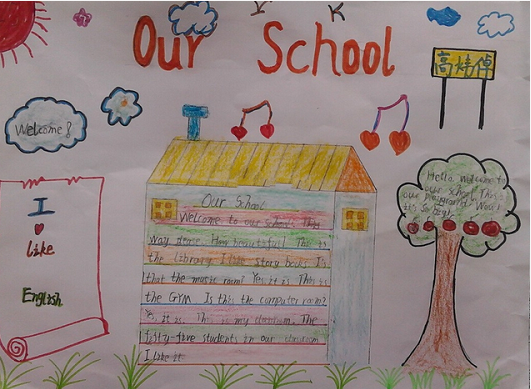 Our School
Welcome!
I
like
English
Our School
Welcome to our school This
way please. How beautiful! This is
the library I like story books Is
that the music room? Yes it is This is
the GYM. Is this the computer room?
Yes, it is. This is my classroom. The
fifty-five students in our classroom
I like it
Hello welcome to
our school This is
our playground.